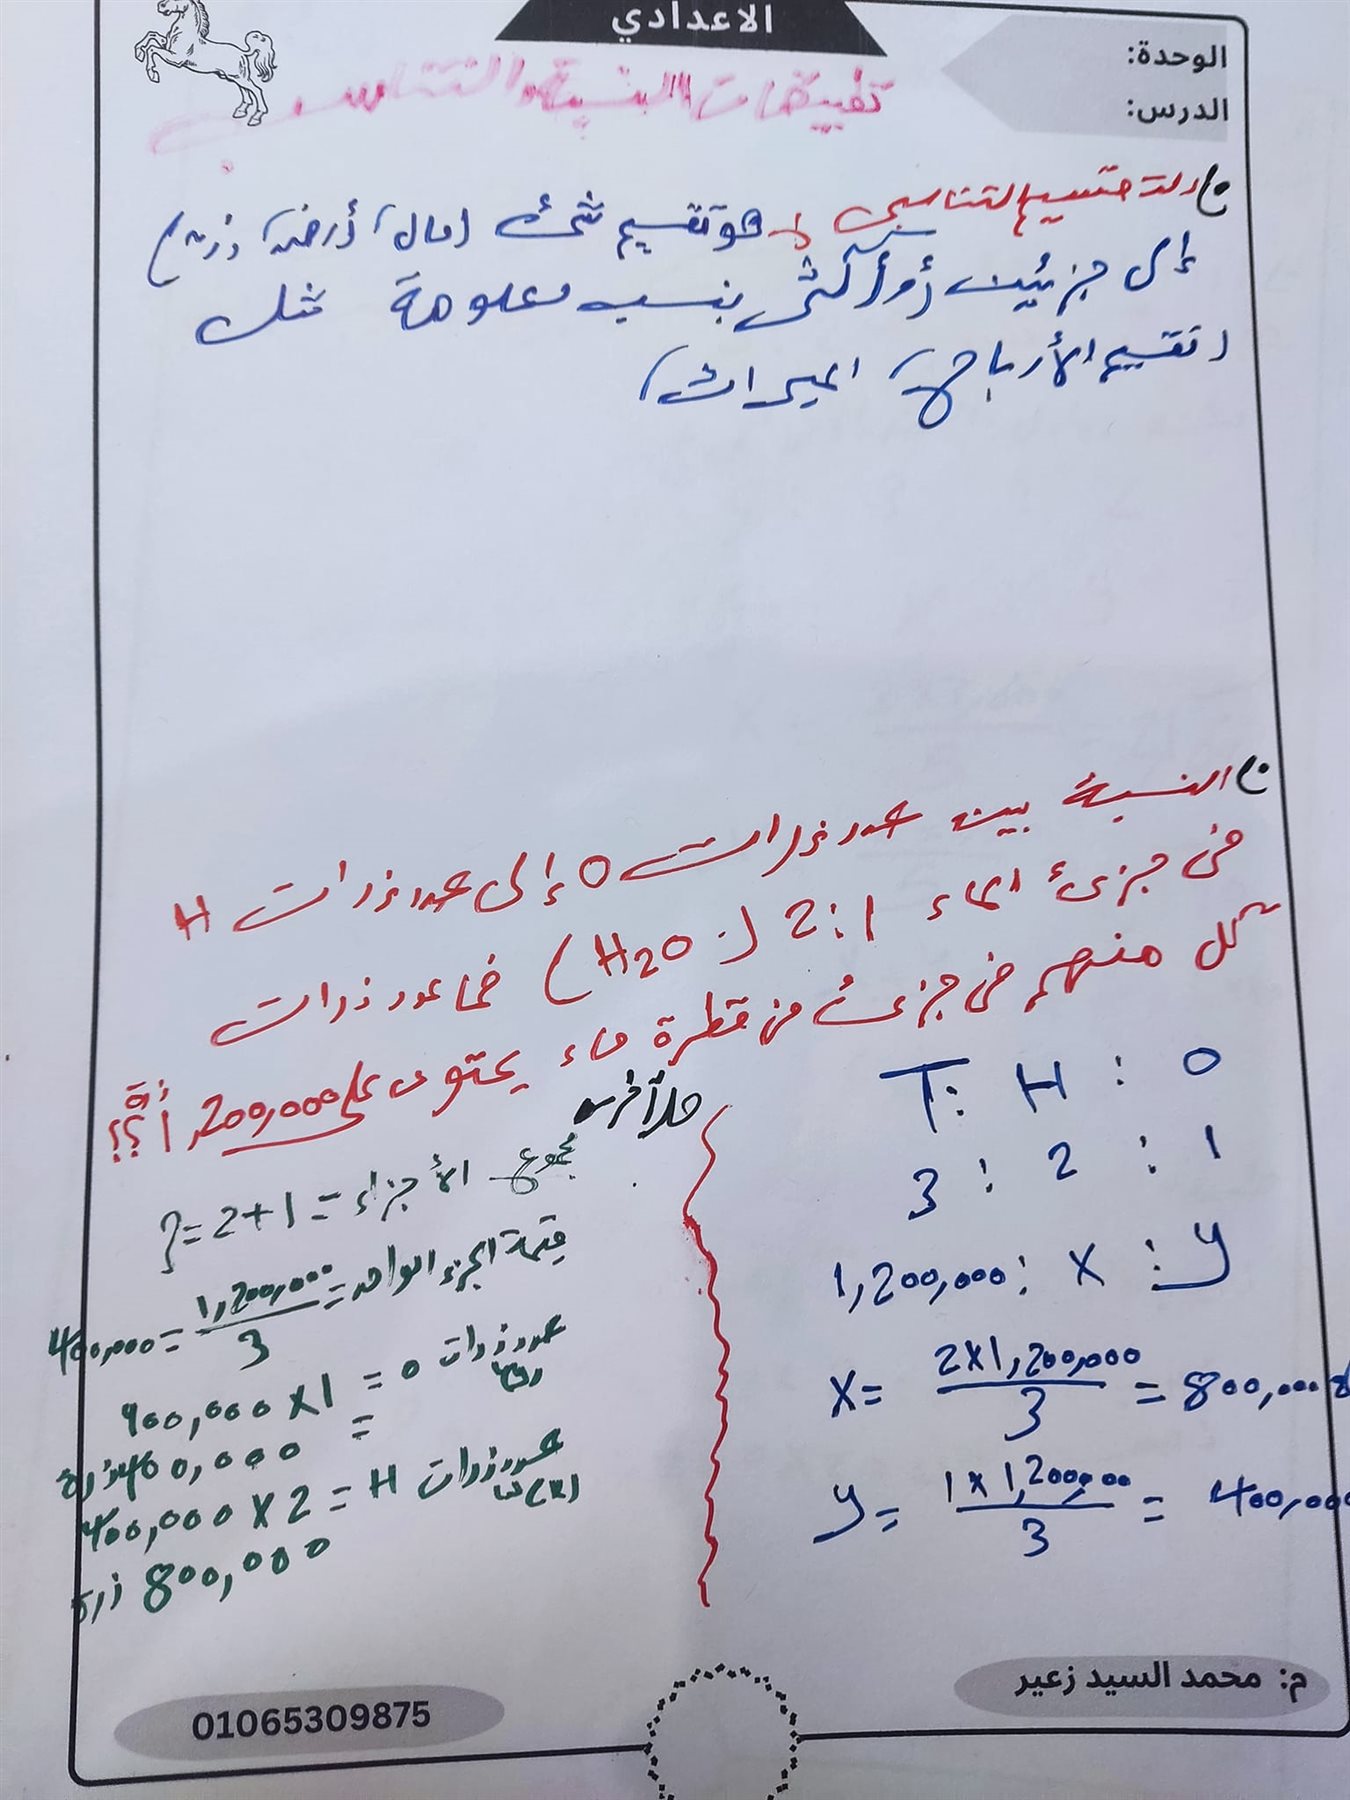 الاعدادي
الوحدة:
الدرس:
تطبيقات النسبة والتناسب
التقسيم التناسبي هو تقسيم شئ (مال، أرض، زرع)
إلى جزئين (أو أكثر) بنسب معلومة مثل
(تقسيم الأرباح، الميراث)
النسبة بين عدد ذرات O إلى عدد ذرات H
فى جزئ الماء 2:1 (H2O) فما عدد ذرات
كل منهم فى جزئ من قطرة ماء يحتوى على 1,200,000 ذرة؟؟
O : H : T
1 : 2 : 3
y : x : 1,200,000
x = 2×1,200,000 / 3 = 800,000
y = 1×1,200,000 / 3 = 400,000
حل آخر
مجموع الأجزاء = 1+2 = 3
قيمة الجزء الواحد = 1,200,000 / 3 = 400,000
عدد ذرات O = 1×400,000
= 400,000 ذرة
عدد ذرات H = 2×400,000
800,000 ذرة
م: محمد السيد زعير
01065309875